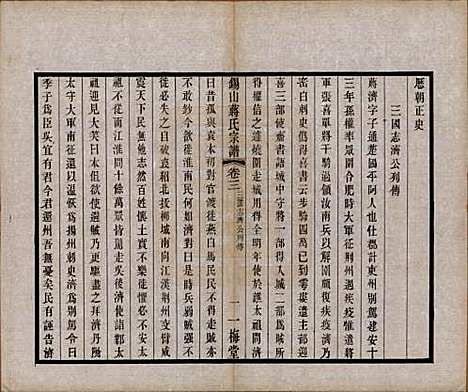 歷朝正史
三國志濟公列傳
蔣濟字子通楚國平阿人也仕郡計吏州別駕建安十
三年孫權率衆圍合肥時大軍征荊州遇疾疫惟遣將
軍張喜單將千騎過領汝南兵以解圍頗復疾疫濟乃
密白刺史僞得喜書云步騎四萬已到雩婁遣主簿迎
喜三部使齎書語城中守將一部得入城二部爲賊所
得權信之遽燒圍走城用得全明年使於譙太祖問濟
錫山蔣氏宗譜 卷三 三國志濟公列傳 一 一梅堂
曰昔孤與袁本初對官渡徙燕白馬民民不得走賊亦
不敢鈔今欲徙淮南民何如對曰是時兵弱賊強不
徙必失之自破袁紹北拔柳城南向江漢荊州交臂威
震天下民無他志然百姓懷土實不樂徙懼必不安太
祖不從而江淮間十餘萬衆皆驚走吳後濟使詣鄴太
祖迎見大笑曰本但欲使避賊乃更驅盡之拜濟丹陽
太守大軍南征還以溫恢爲揚州刺史濟爲別駕令曰
季子爲臣吳宜有君今君還州吾無憂矣民有誣告濟